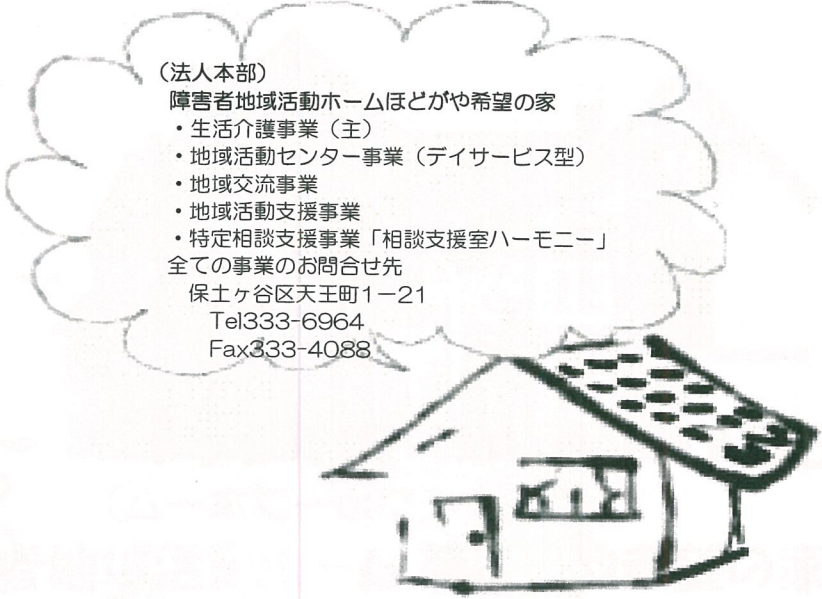 （法人本部）
障害者地域活動ホームほどがや希望の家
・生活介護事業（主）
・地域活動センター事業（デイサービス型）
・地域交流事業
・地域活動支援事業
・特定相談支援事業「相談支援室ハーモニー」
全ての事業のお問合せ先
保土ヶ谷区天王町1－21
Tel333-6964
Fax333-4088